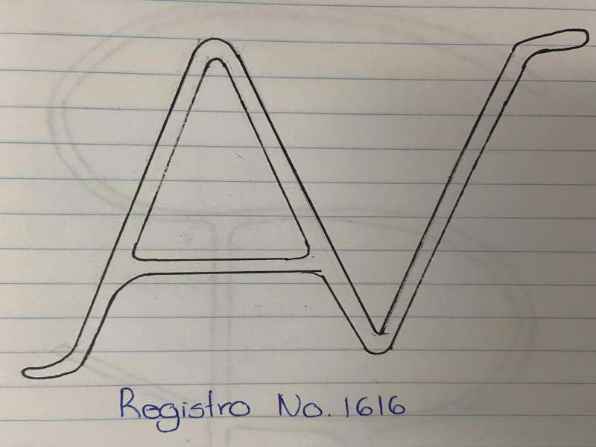 AV
Registro No. 1616